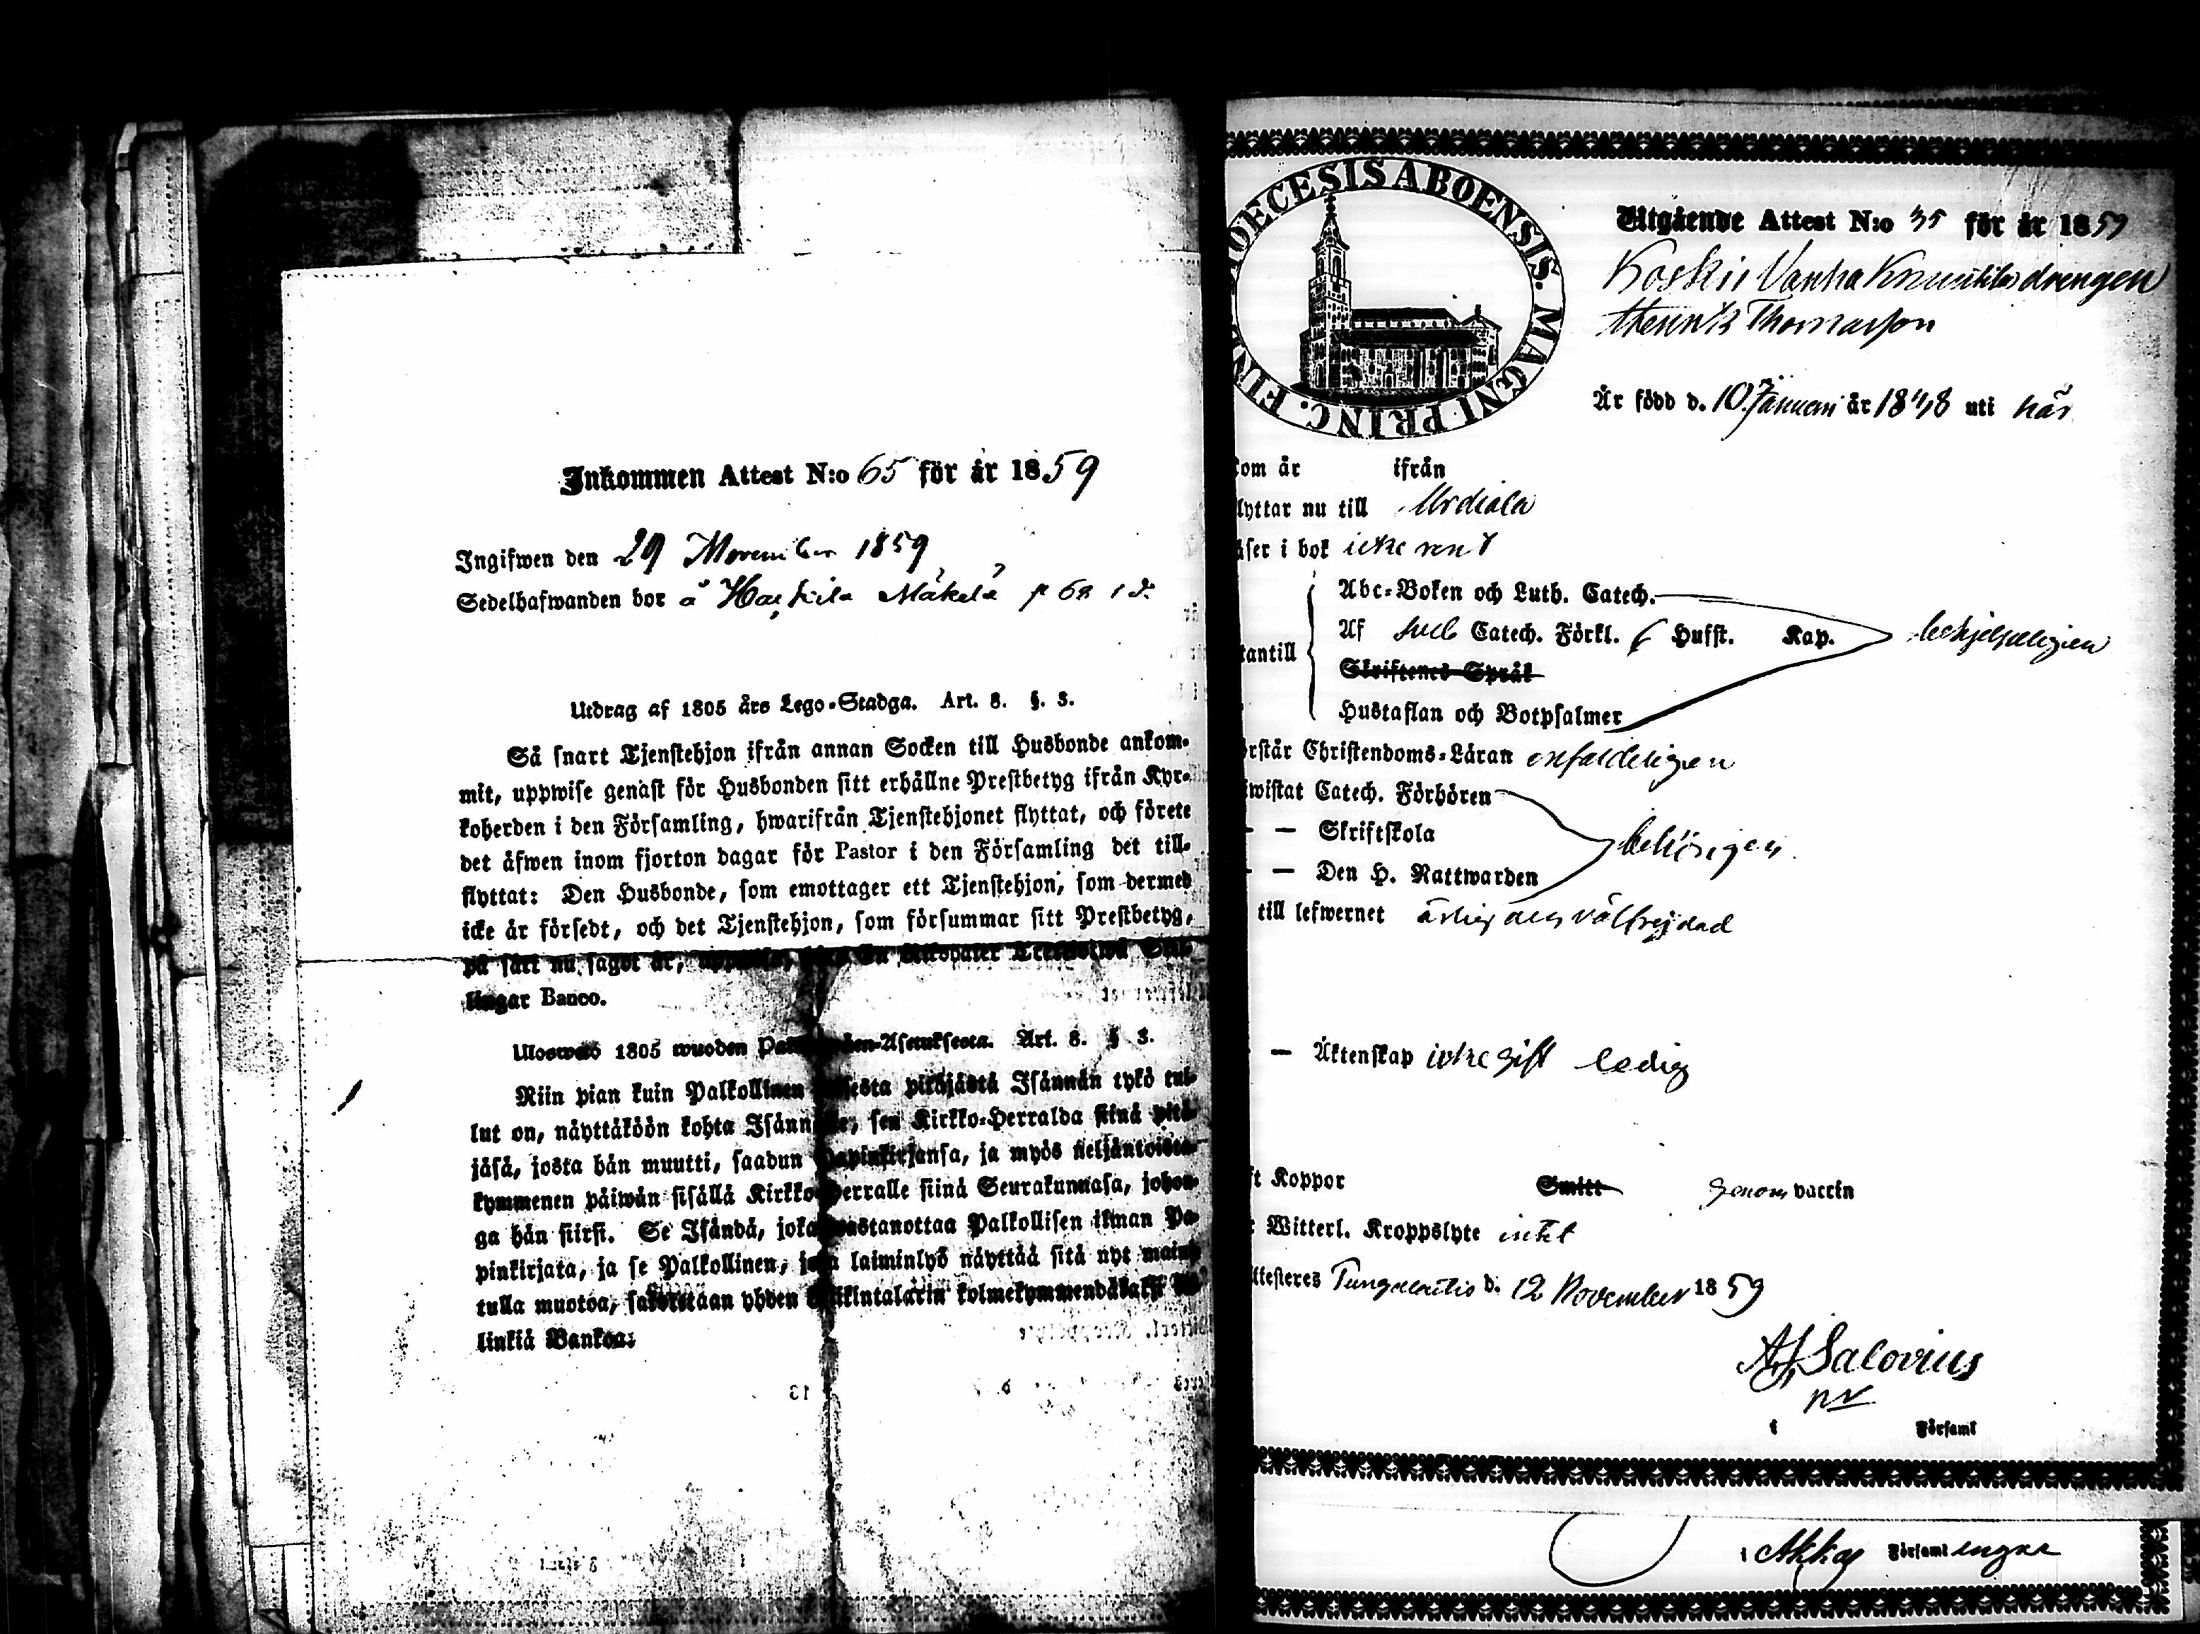 Inkommen Attest N:o 65 för år 1859
Ingifwen den 29 November 1859
Sedelhafwanden bor å Mäkelä p 62
Utdrag af 1805 års Lego-Stadga. Art. 8. §. 3.
Så snart Tjenstehjon ifrån annan Socken till Husbonde ankom-
mit, uppwise genast för Husbonden sitt erhållne Prestbetyg ifrån Kyr-
koherden i den Församling, hwarifrån Tjenstehjonet flyttat, och förete
det äfwen inom fjorton dagar för Pastor i den Församling det till-
flyttat: Den Husbonde, som emottager ett Tjenstehjon, som dermed
icke är försedt, och det Tjenstehjon, som försummar sitt Prestbetyg,
på sätt nu sagdt är,
lingar Banco.
Ulosweto 1805 wuoden Art. 8. § 3.
Niin pian kuin Palkollinen pitäjästä Isännän tykö tul-
lut on, näyttäköön kohta sen Kirkko-Herralda siinä pitä-
jäsä, josta hän muutti, saadun ja myös neljäntoista-
kymmenen päiwän sisällä Kirkko-Herralle siinä Seurakunnasa, johon-
ga hän siirsi. Se Isändä, joka wastanottaa Palkollisen ilman Pa-
pinkirjata, ja se Palkollinen, joka laiminlyö näyttää sitä nyt mainit-
tulla muotoa, sakotetaan yhden
linkiä Bankoa:
DIOECESIS ABOENSIS. MAGNI PRINC. FIN
Utgående Attest N:o 35 för år 1859
Koskis Vanha drengen
Henrik Thomasson
Är född d. 10 Januari år 1848 uti här
kom år ifrån
flyttar nu till Urdiala
läser i bok icke rent
utantill
Abc-Boken och Luth. Catech.
Af Sveb Catech. Förkl. 6 Hufst. Kap.
Skriftenes Språk
Hustaflan och Botpsalmer
förstår Christendoms-Läran enfaldeligen
bewistat Catech. Förhören
— — Skriftskola
behörigen
— — Den H. Nattwarden
till lefwernet ärlig och välfrejdad
— Äktenskap icke gift ledig
Koppor Smitt genom vaccin
Witterl. Kroppslyte intet
Attesteres Tungelaitio d. 12 November 1859
Salovius
i Församl
i Akkas Församl ingar